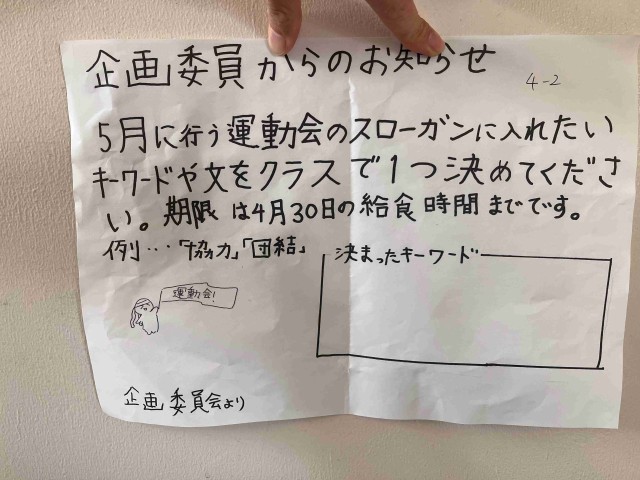 企画委員からのお知らせ
4-2
5月に行う運動会のスローガンに入れたい
キーワードや文をクラスで1つ決めてくださ
い。期限は4月30日の給食時間までです。
例…「協力」「団結」
決まったキーワード
運動会!
企画委員会より